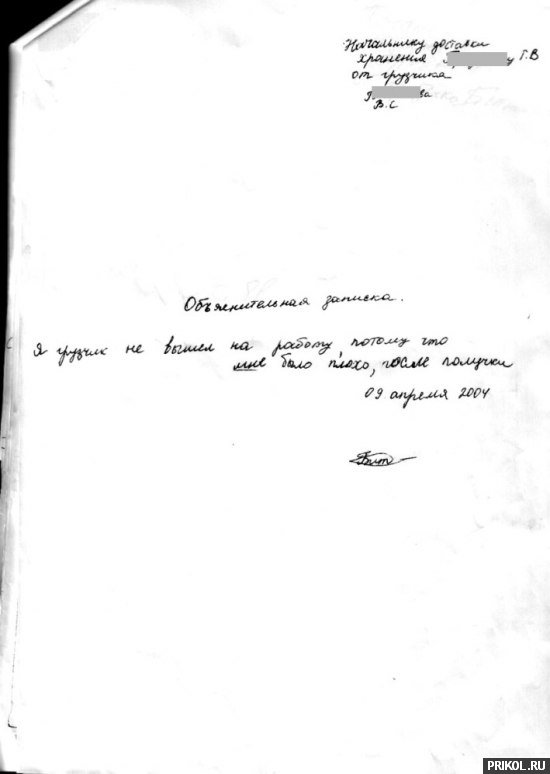 Начальнику доставки
хранения Т.В
от грузчика
В.С
Объяснительная записка.
Я грузчик не вышел на работу, потому что
мне было плохо, после получки
09 апреля 2004
PRIKOL.RU